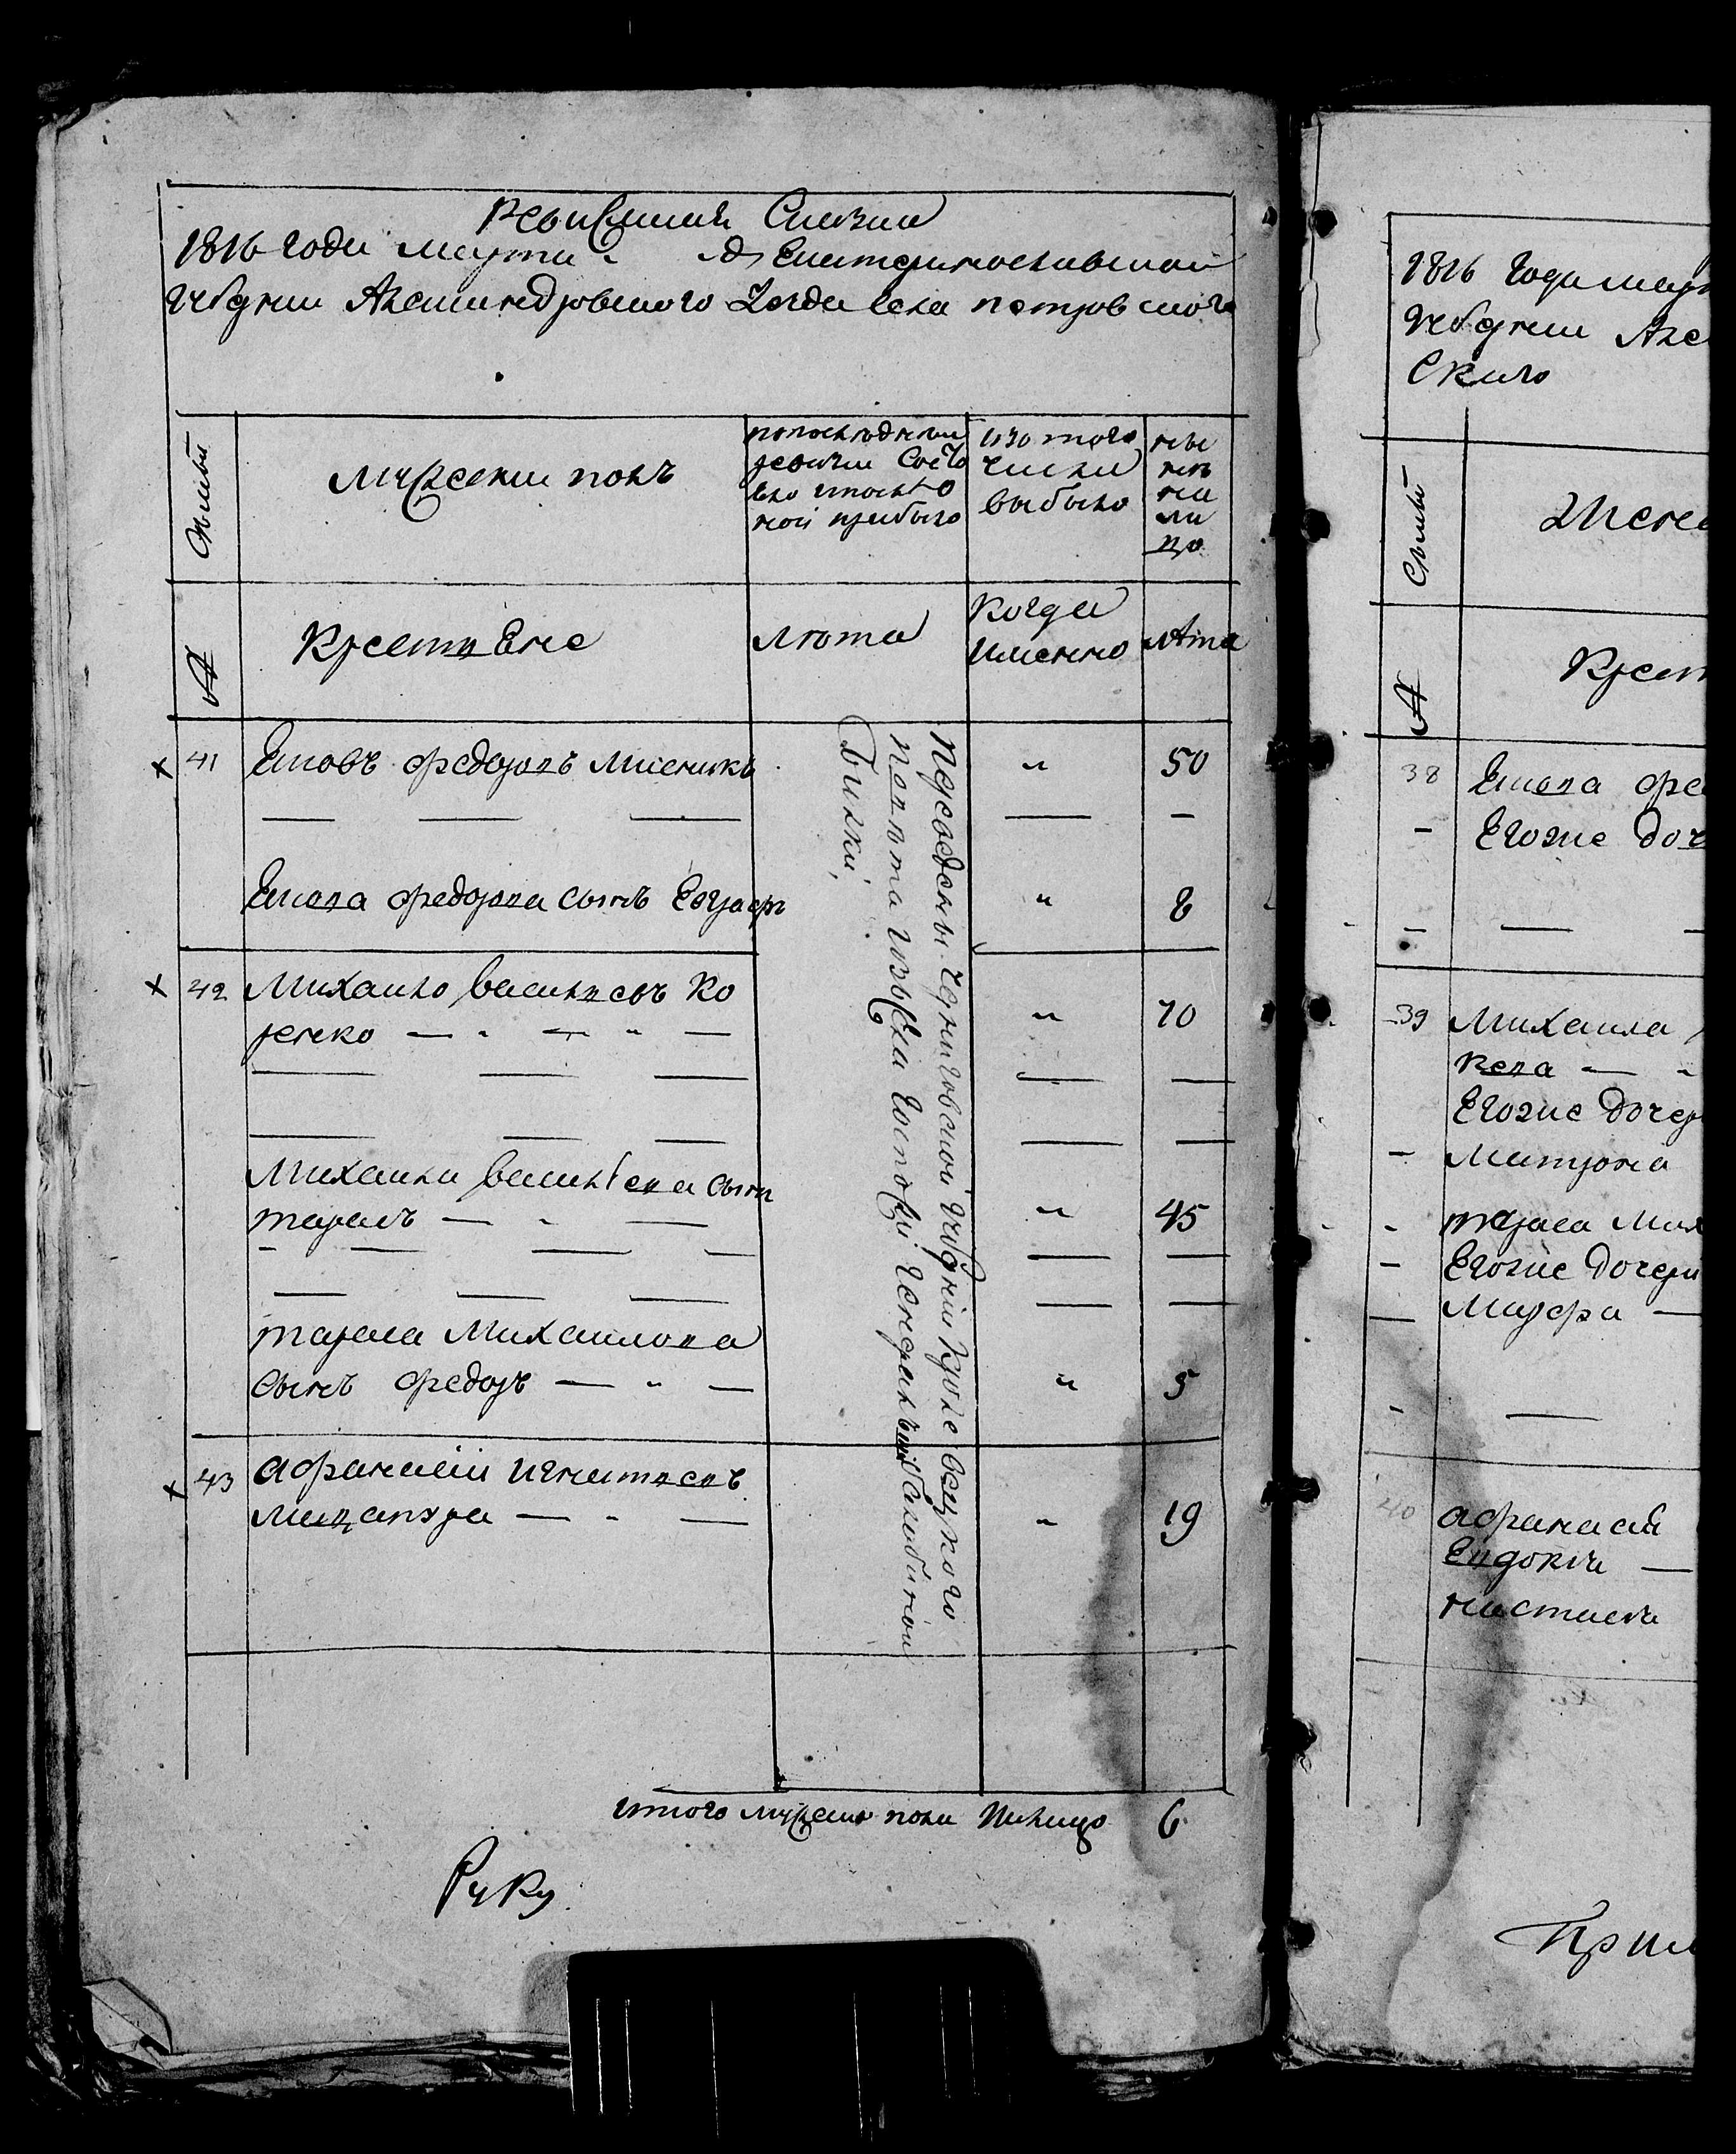 Ревизская Сказка
1816 года марта " д Екатеринославской
губернии Александровского уезда села петровского
Семьи
Мужеский полъ
по последней
ревизии состо
яло и после о
ной прибыло
изо того
числа
выбыло
ны
не
на
ли
цо
№
Крестьяне
лета
Когда
именно
лета
41 Яковъ федоровъ
" 50
Якова федорова сынъ
" 8
42 Михайло васильевъ Ко
ренко — " — " —
" 70
Михайла васильева сынъ
тарасъ — " —
" 45
тараса Михайлова
сынъ федоръ — " —
" 5
43 афанасий игнатьевъ
— " —
" 19
Переведены черниговской губернии кролевецкого
повета из села господи генеральши
итого мужеска пола налицо 6
Руку
1816 года мар
губернии Алек
Ского
Семьи
Женс
№
Крест
38 Якова фе
Егоже доч
39 Михаила
Егоже дочер
Матрона
тараса Мих
Егоже дочери
Марфа —
40 афанасий
Евдокия —
настасия
При